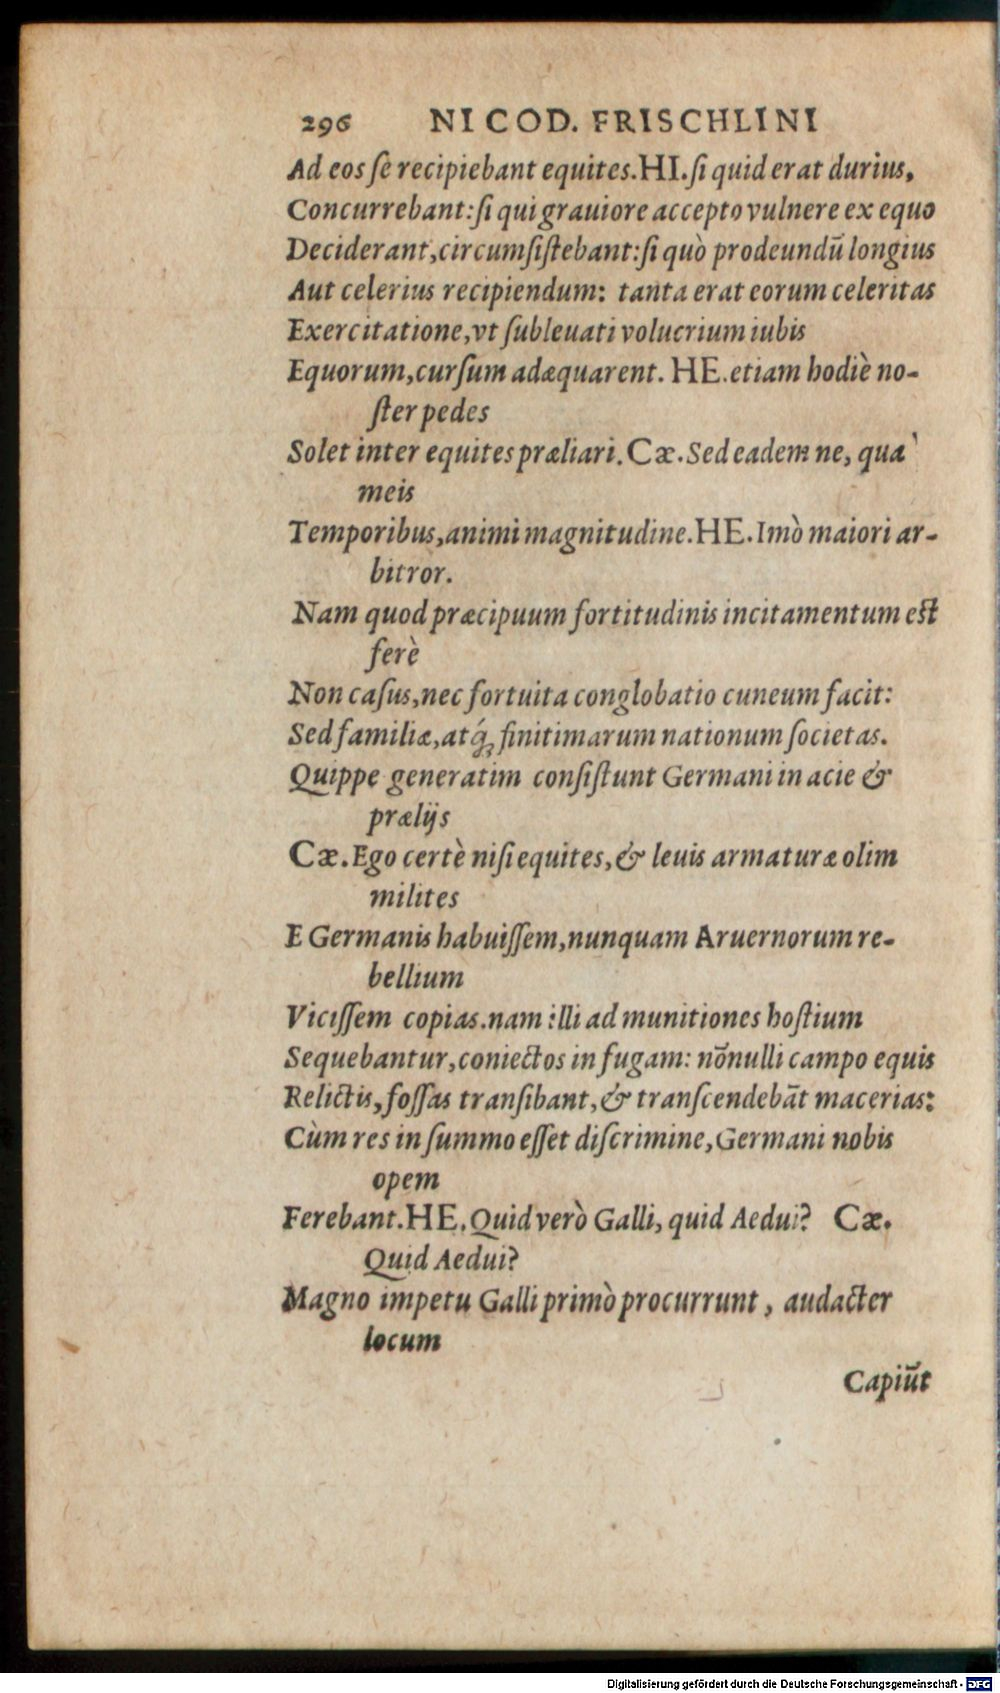 296 NICOD. FRISCHLINI
Ad eos ſe recipiebant equites. HI. ſi quid erat durius,
Concurrebant: ſi qui grauiore accepto vulnere ex equo
Deciderant, circumſiſtebant: ſi quò prodeundū longius
Aut celerius recipiendum: tanta erat eorum celeritas
Exercitatione, vt ſubleuati volucrium iubis
Equorum, curſum adæquarent. HE. etiam hodiè no-
ſter pedes
Solet inter equites præliari. Cæ. Sed eadem ne, qua
meis
Temporibus, animi magnitudine. HE. Imò maiori ar-
bitror.
Nam quod præcipuum fortitudinis incitamentum eſt
ferè
Non caſus, nec fortuita conglobatio cuneum facit:
Sed familiæ, atq́ꝫ finitimarum nationum ſocietas.
Quippe generatim conſiſtunt Germani in acie &
prælijs
Cæ. Ego certè niſi equites, & leuis armaturæ olim
milites
E Germanis habuiſſem, nunquam Aruernorum re-
bellium
Viciſſem copias. nam illi ad munitiones hoſtium
Sequebantur, coniectos in fugam: nōnulli campo equis
Relictis, foſſas tranſibant, & tranſcendebāt macerias:
Cùm res in ſummo eſſet diſcrimine, Germani nobis
opem
Ferebant. HE. Quid verò Galli, quid Aedui? Cæ.
Quid Aedui?
Magno impetu Galli primò procurrunt, audacter
locum
Capiūt
Digitalisierung gefördert durch die Deutsche Forschungsgemeinschaft - DFG